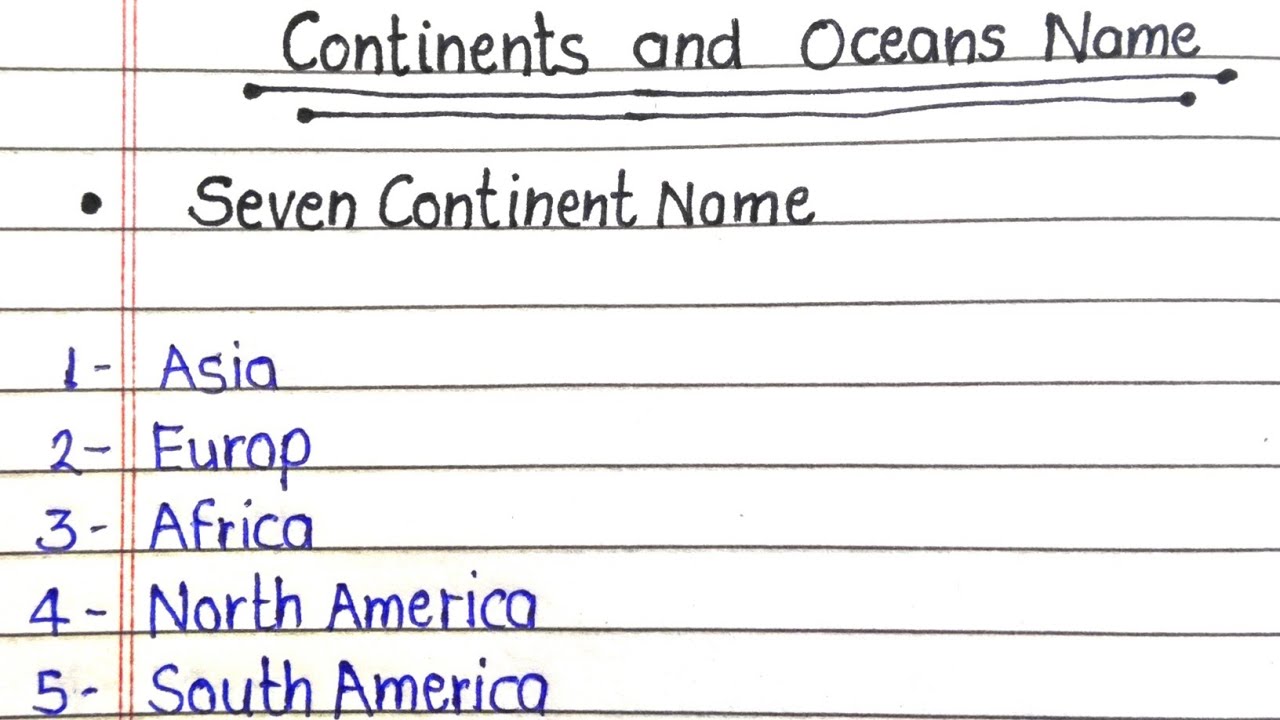 Continents and Oceans Name
• Seven Continent Name
1- Asia
2- Europ
3- Africa
4- North America
5- South America